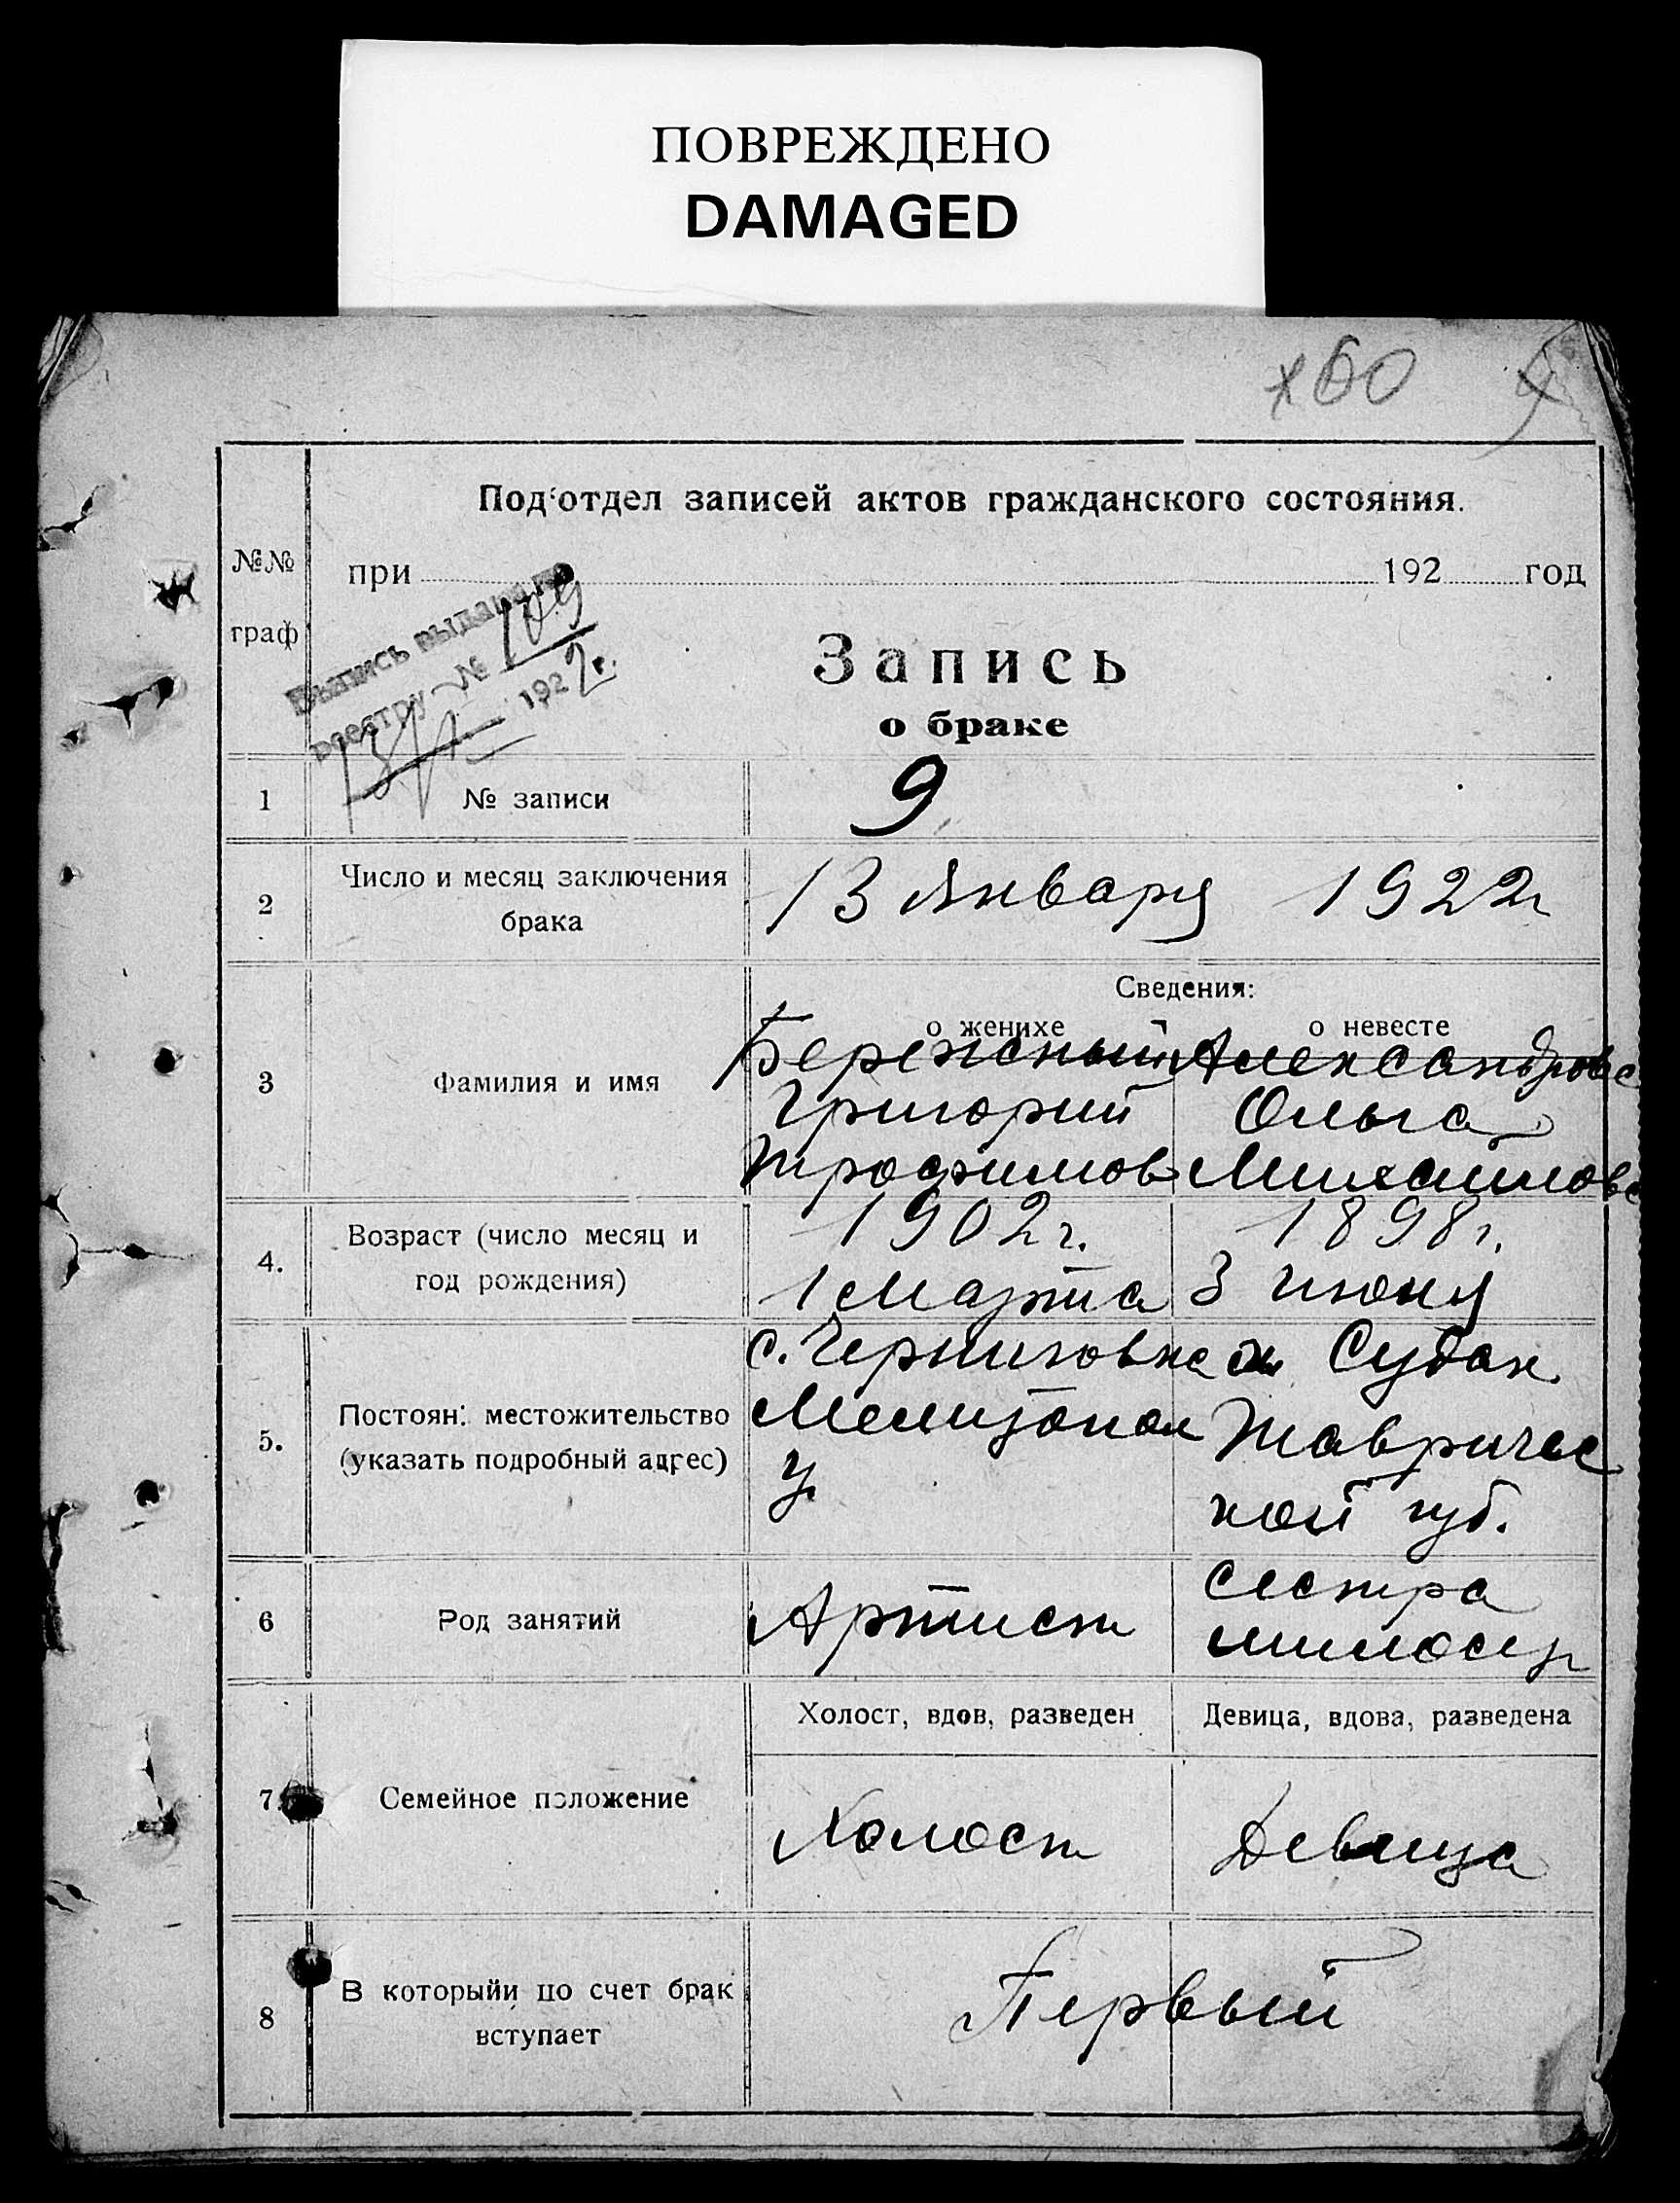 ПОВРЕЖДЕНО
DAMAGED
60
Под'отдел записей актов гражданского состояния.
№№
граф
при 192 год
Выпись выдана по
реестру № 109
192 2 г.
Запись
о браке
1 № записи 9
2 Число и месяц заключения
брака
13 Января 1922 г
Сведения:
о женихе о невесте
3 Фамилия и имя
Бережный Александрова
Григорий Ольга
Трофимов
4. Возраст (число месяц и
год рождения)
1902 г. 1898 г.
1 Марта 3 Июня
5. Постоян: местожительство
(указать подробный адрес)
с. Черниговка Судак
Мелитопол Тавричес
у кой губ.
6 Род занятий
Артист сестра
милосер
Холост, вдов, разведен Девица, вдова, разведена
7. Семейное положение
Холост Девица
8 В которыйи по счет брак
вступает
Первый